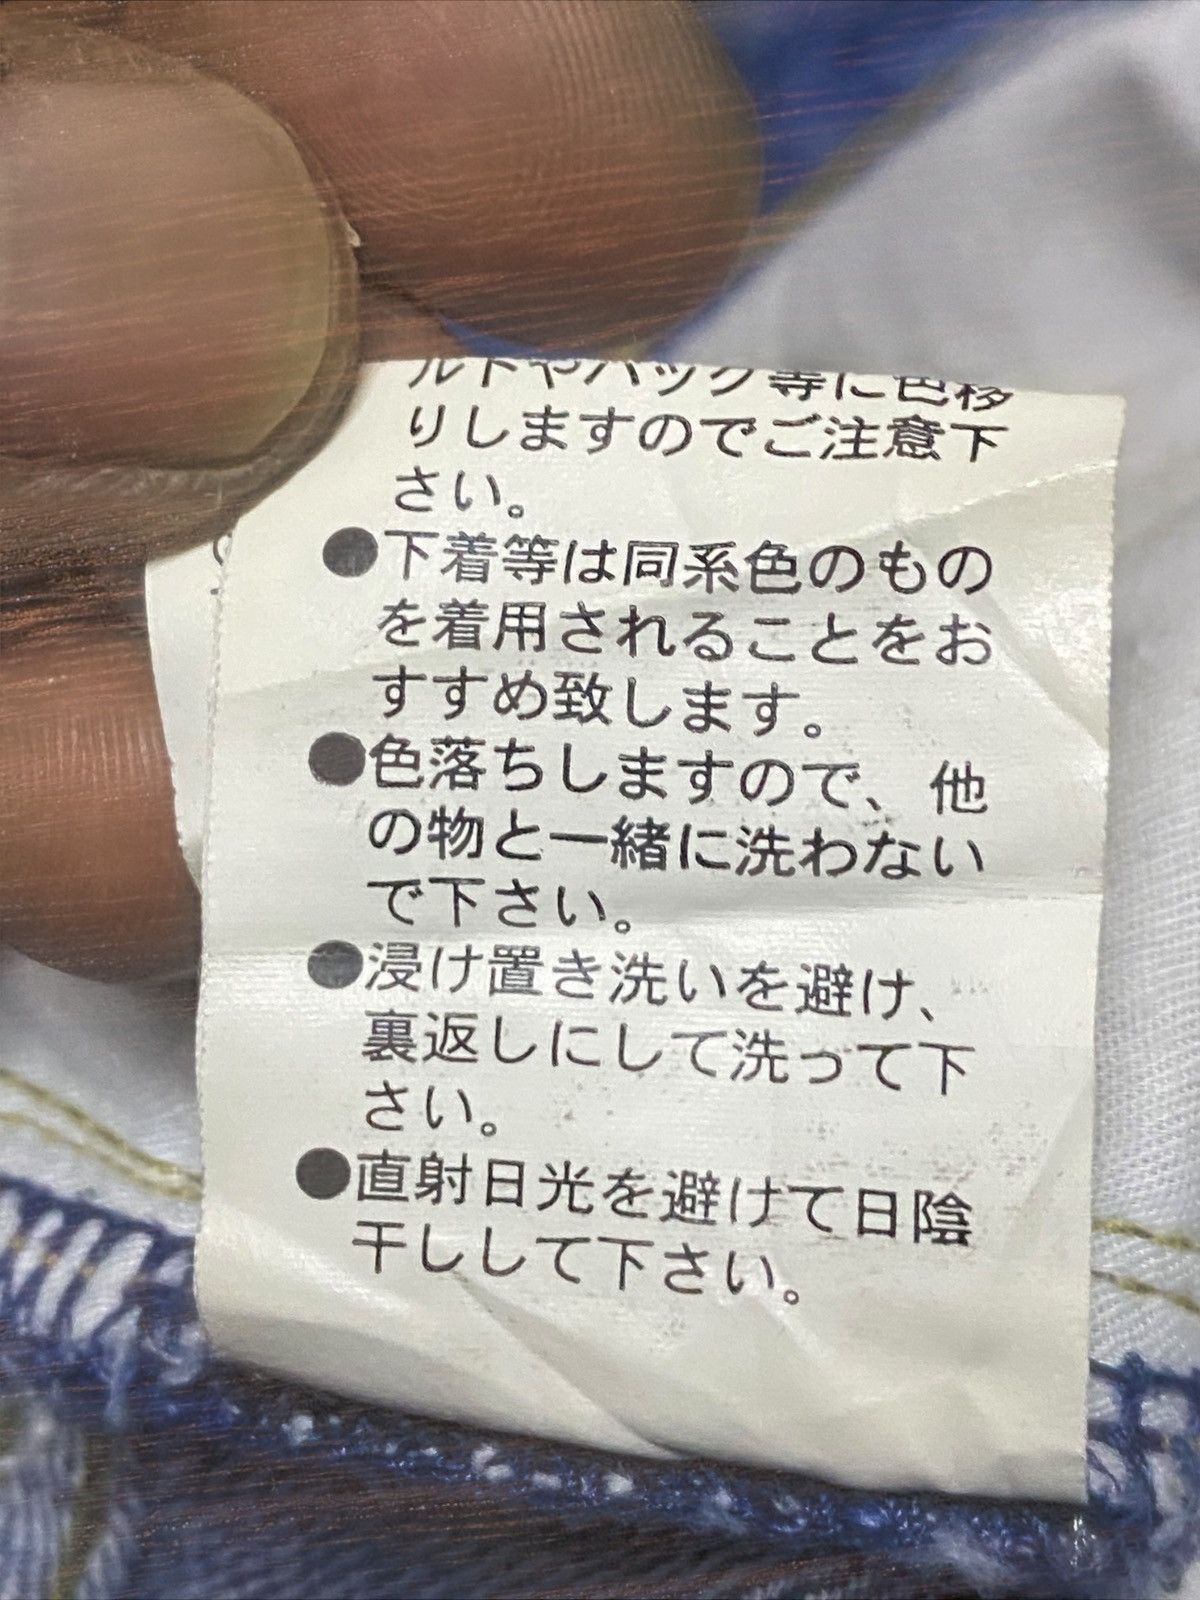 ルトやバッグ等に色移
りしますのでご注意下
さい。
●下着等は同系色のもの
を着用されることをお
すすめ致します。
●色落ちしますので、他
の物と一緒に洗わない
で下さい。
●浸け置き洗いを避け、
裏返しにして洗って下
さい。
●直射日光を避けて日陰
干しして下さい。